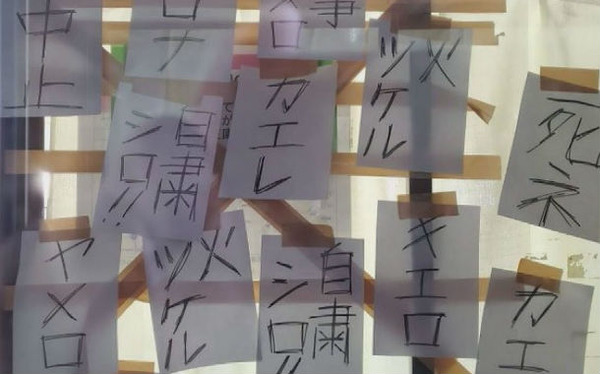 中止
ロナ
事
ロ
火
ツケル
死ネ
自粛
シロ!!
カエレ
ヤメロ
火
ツケル
自粛
シロ!!
キエロ
カエ